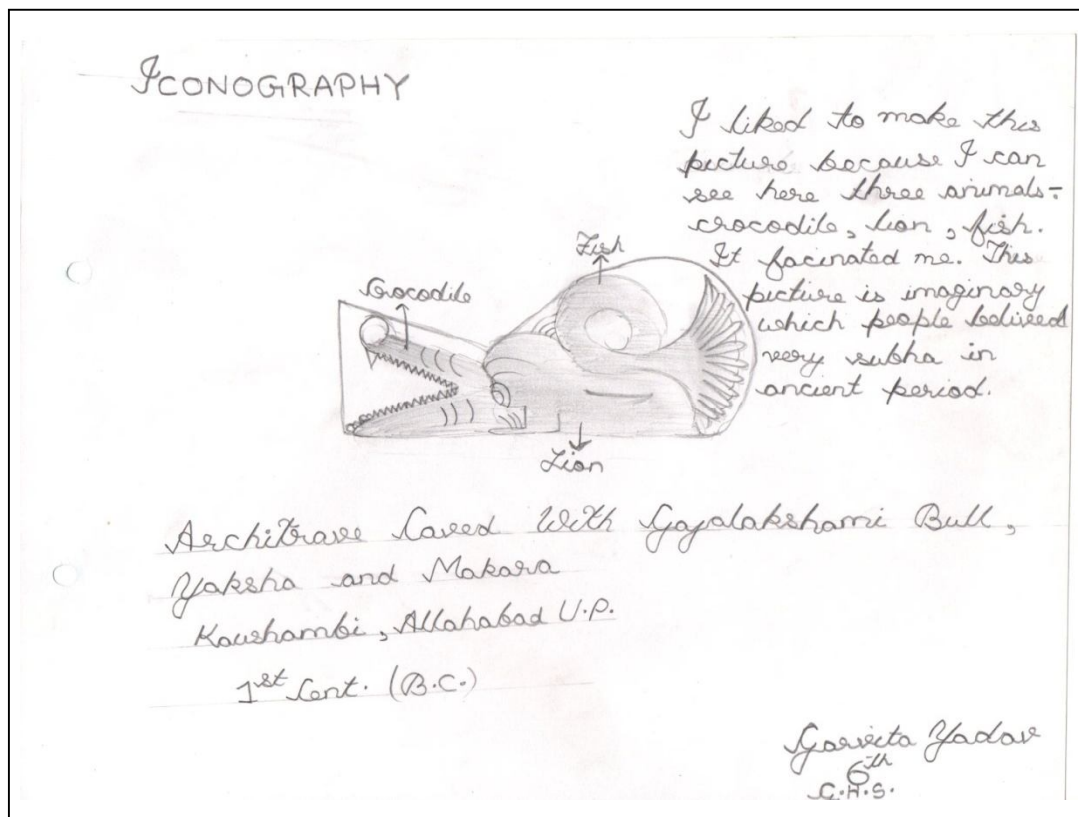 ICONOGRAPHY
I liked to make this
picture because I can
see here three animals-
crocodile, lion, fish.
It facinated me. This
picture is imaginary
which people belived
very subha in
ancient period.
Fish
Crocodile
Lion
Architrave Caved With Gajalakshami Bull,
Yaksha and Makara
Kaushambi, Allahabad U.P.
1st Cent. (B.C.)
Garvita Yadav
6th
C.H.S.